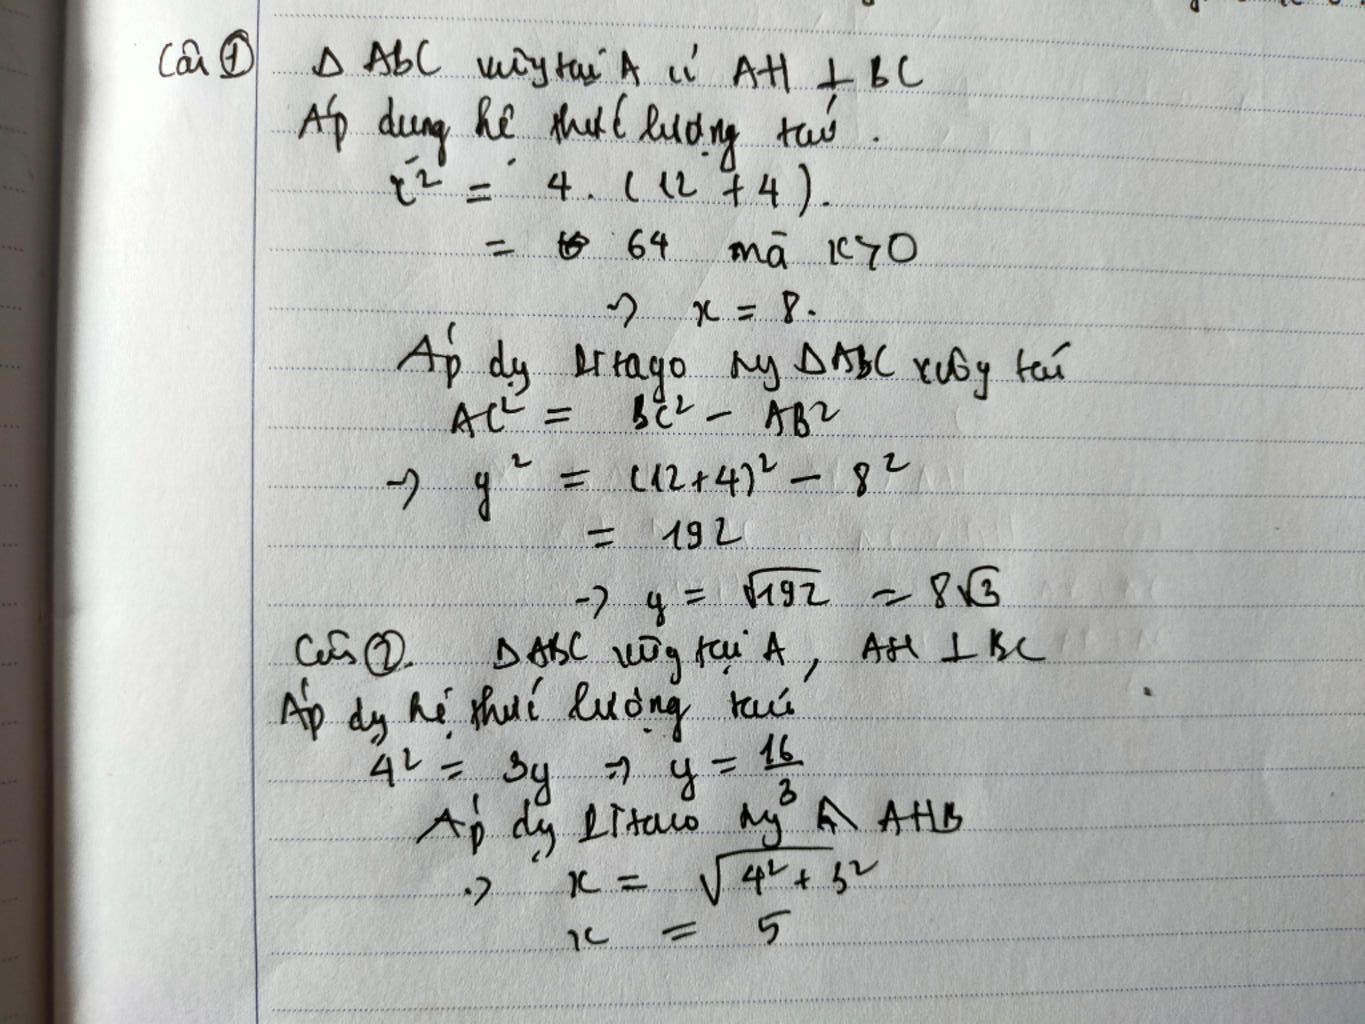 Câu ① Δ ABC vuông tại A có AH ⊥ BC
Áp dụng hệ thức lượng ta có.
x² = 4. (12 + 4).
= 64 mà x>0
→ x = 8.
Áp dg Pitago trg ΔABC vuông tại
AC² = BC² - AB²
→ y² = (12+4)² - 8²
= 192
→ y = √192 = 8√3
Câu ②. ΔABC vuông tại A, AH ⊥ BC
Áp dg hệ thức lượng ta có
4² = 3y → y = 16/3
Áp dg Pitago trg AHB
→ x = √4² + 3²
x = 5